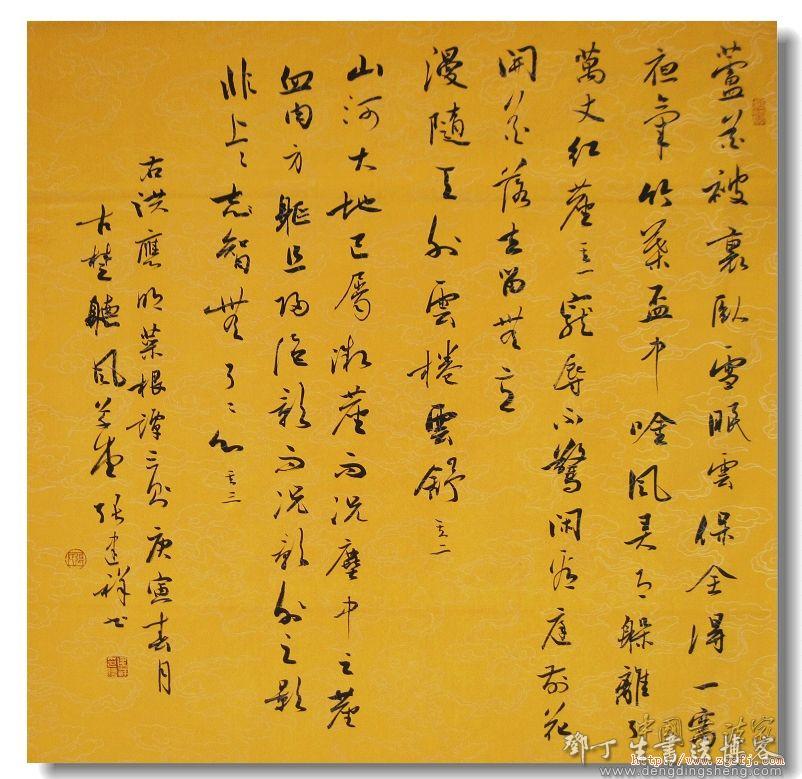 蘆花被裏臥雪眠雲保全得一窩
夜氣竹葉盃中吟風弄月躲離了
萬丈紅塵 其一 寵辱不驚閑看庭前花
開花落去留無意
漫隨天外雲捲雲舒 其二
山河大地已屬微塵而況塵中之塵
血肉身軀且歸泡影而況影外之影
非上〻志智無了〻心 其三
右洪應明菜根譚三則庚寅春月
古楚聽風草堂張建祥书
鄧丁生書法博客
www.dengdingsheng.com